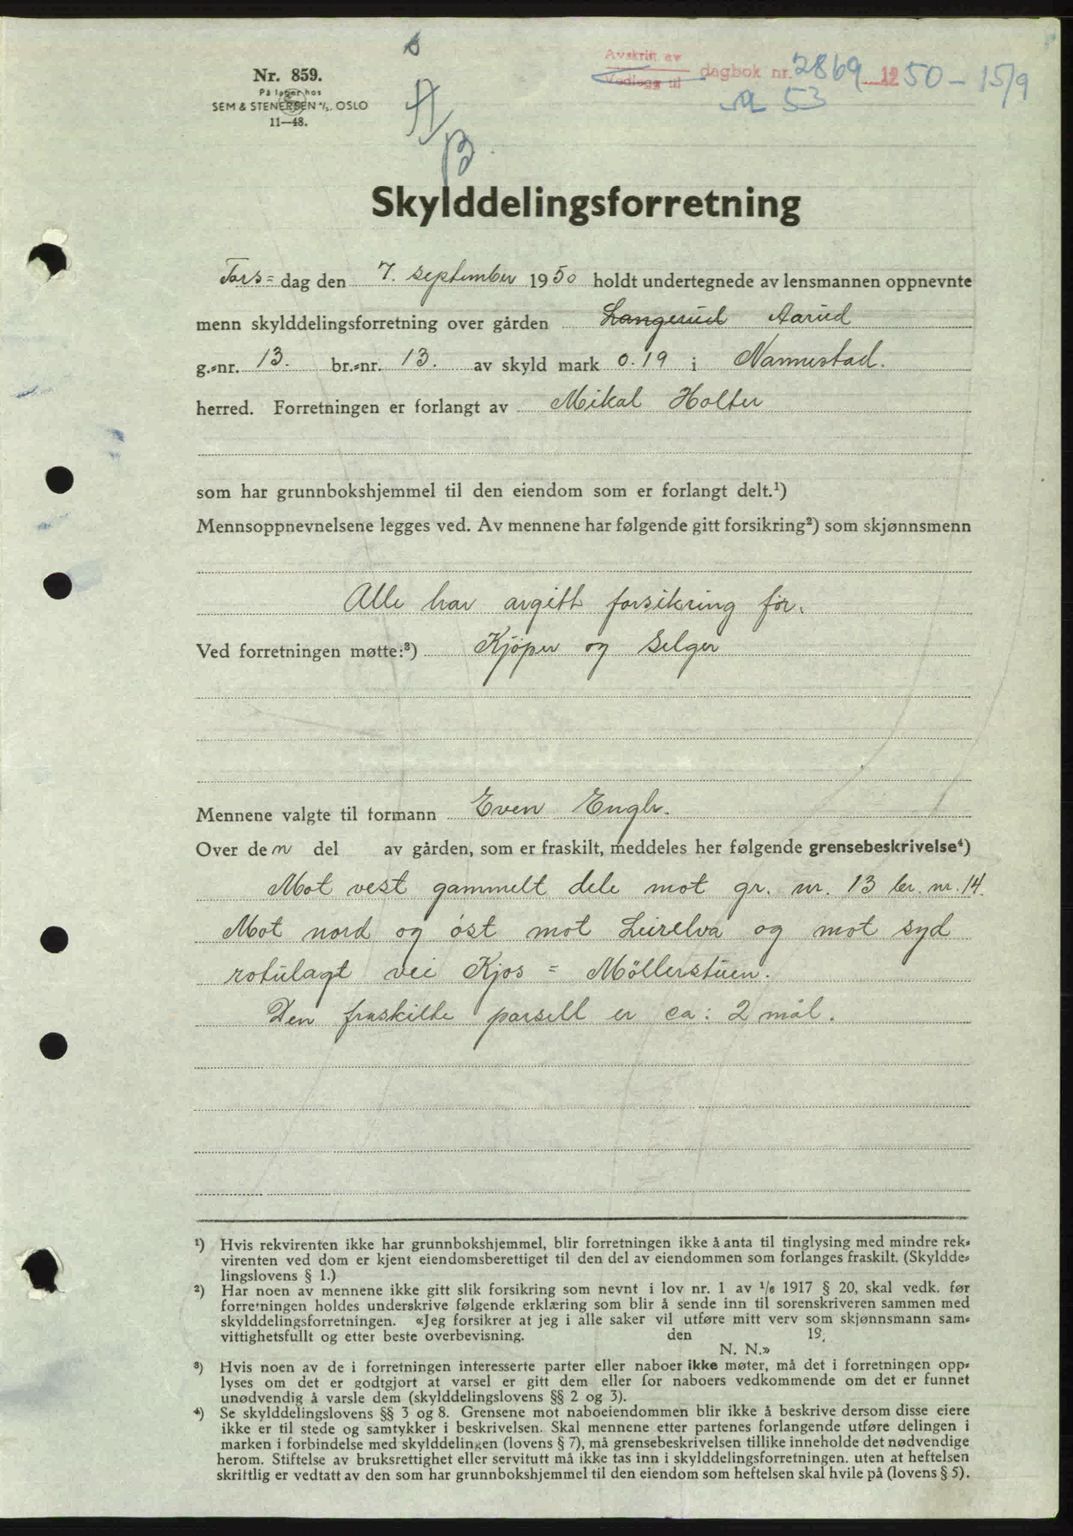 Nr. 859.
På lager hos
SEM & STENERSEN A/S, OSLO
11—48.
A
B
Avskrift av
Vedlegg til
dagbok nr. 2869 1950 - 15/9
53
Skylddelingsforretning
Tors- dag den 7. september 1950 holdt undertegnede av lensmannen oppnevnte
menn skylddelingsforretning over gården Langerud Aarud
g.-nr. 13. br.-nr. 13. av skyld mark 0.19 i Nannestad.
herred. Forretningen er forlangt av Mikal Holter
som har grunnbokshjemmel til den eiendom som er forlangt delt.¹)
Mennsoppnevnelsene legges ved. Av mennene har følgende gitt forsikring²) som skjønnsmenn
Alle har avgitt forsikring før.
Ved forretningen møtte:³) Kjöper og Selger
Mennene valgte til formann Even Engh.
Over den del av gården, som er fraskilt, meddeles her følgende grensebeskrivelse⁴)
Mot vest gammelt dele mot gr. nr. 13 br. nr. 14.
Mot nord og öst mot Leirelva og mot syd
rotulagt vei Kjos = Möllerstuen.
Den fraskilte parsell er ca: 2 mål.
¹) Hvis rekvirenten ikke har grunnbokshjemmel, blir forretningen ikke å anta til tinglysing med mindre rek-
virenten ved dom er kjent eiendomsberettiget til den del av eiendommen som forlanges fraskilt. (Skyldde-
lingslovens § 1.)
²) Har noen av mennene ikke gitt slik forsikring som nevnt i lov nr. 1 av 1/6 1917 § 20, skal vedk. før
forretningen holdes underskrive følgende erklæring som blir å sende inn til sorenskriveren sammen med
skylddelingsforretningen. «Jeg forsikrer at jeg i alle saker vil utføre mitt verv som skjønnsmann sam-
vittighetsfullt og etter beste overbevisning. den 19.
N. N.»
³) Hvis noen av de i forretningen interesserte parter eller naboer ikke møter, må det i forretningen opp-
lyses om det er godtgjort at varsel er gitt dem eller for naboers vedkommende om det er funnet
unødvendig å varsle dem (skylddelingslovens §§ 2 og 3).
⁴) Se skylddelingslovens §§ 3 og 8. Grensene mot naboeiendommen blir ikke å beskrive dersom disse eiere
ikke er til stede og samtykker i beskrivelsen. Skal mennene etter partenes forlangende utføre delingen i
marken i forbindelse med skylddelingen (lovens § 7), må grensebeskrivelsen tillike inneholde det nødvendige
herom. Stiftelse av bruksrettighet eller servitutt må ikke tas inn i skylddelingsforretningen. uten at heftelsen
skriftlig er vedtatt av den som har grunnbokshjemmel til den eiendom som heftelsen skal hvile på (lovens § 5).